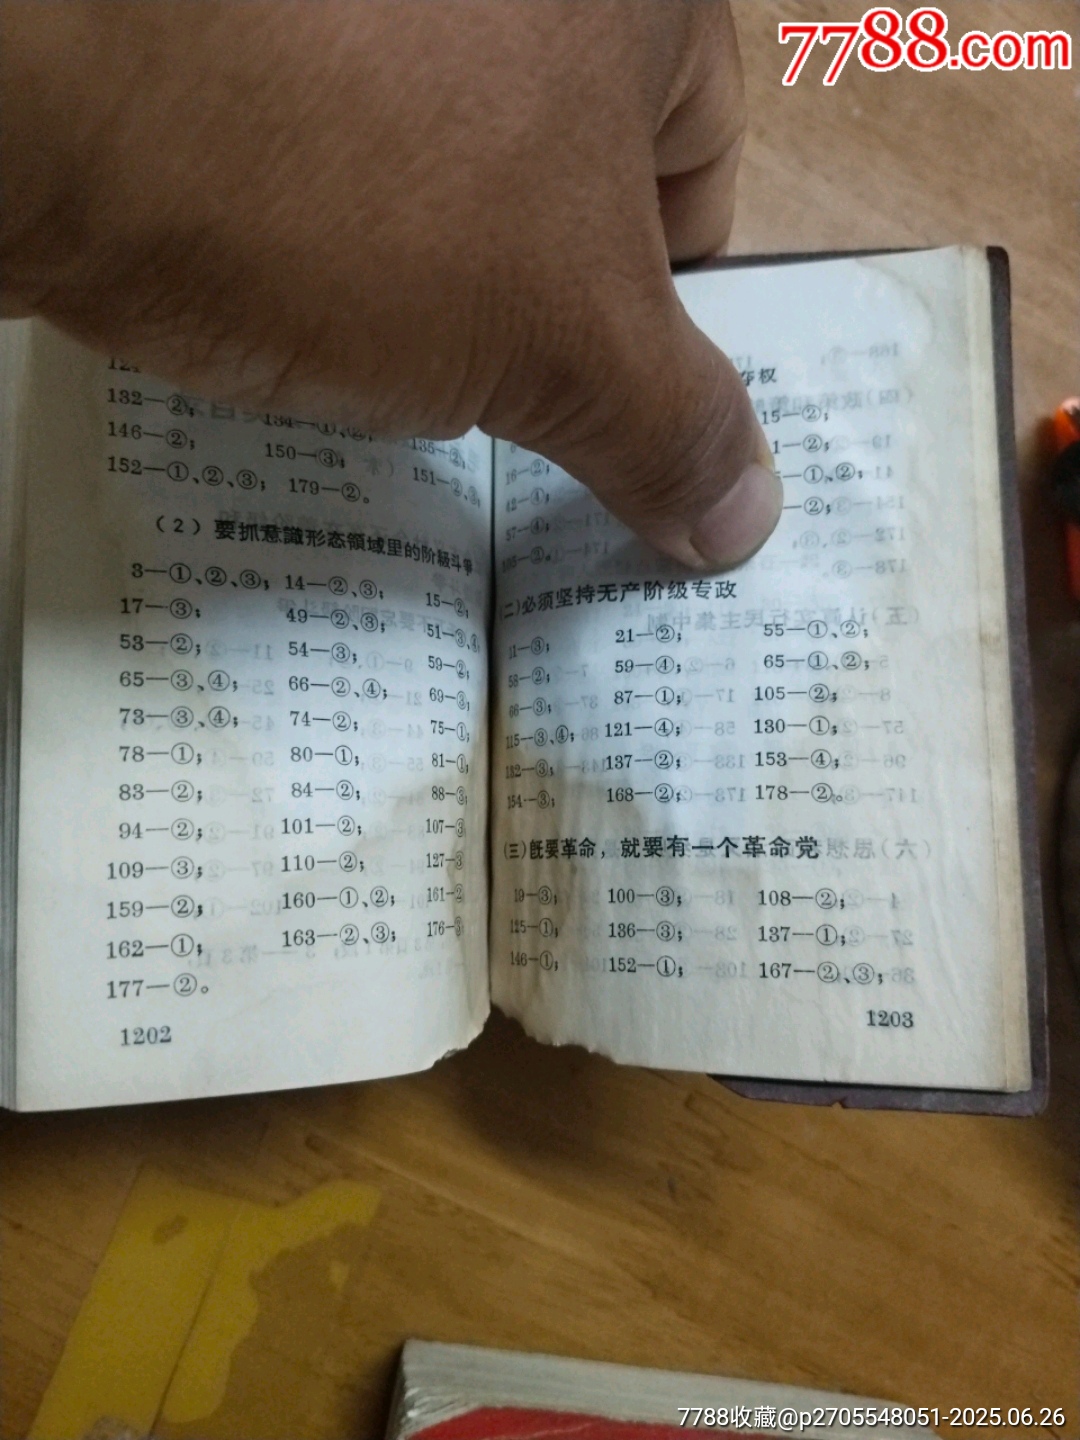 7788.com
132—②;
134—①、②;
135—②;
146—②;
150—③;
151—②、③;
152—①、②、③; 179—②。
(2)要抓意識形态領域里的阶級斗爭
3—①、②、③; 14—②、③; 15—②;
17—③; 49—②、③; 51—③、④;
53—②; 54—③; 59—②;
65—③、④; 66—②、④; 69—③;
73—③、④; 74—②; 75—①;
78—①; 80—①; 81—①;
83—②; 84—②; 88—③;
94—②; 101—②; 107—③
109—③; 110—②; 127—③
159—②; 160—①、②; 161—②
162—①; 163—②、③; 176—③
177—②。
1202
夺权
15—②;
1—②;
16—②; ①、②;
42—④; —②;
57—④;
103—③。
(二)必须坚持无产阶级专政
11—③; 21—②; 55—①、②;
58—②; 59—④; 65—①、②;
66—③; 87—①; 105—②;
115—③、④; 121—④; 130—①;
132—③; 137—②; 153—④;
154—③; 168—②; 178—②。
(三)旣要革命,就要有一个革命党
19—③; 100—③; 108—②;
125—①; 136—③; 137—①;
146—①; 152—①; 167—②、③;
1203
7788收藏@p2705548051-2025.06.26